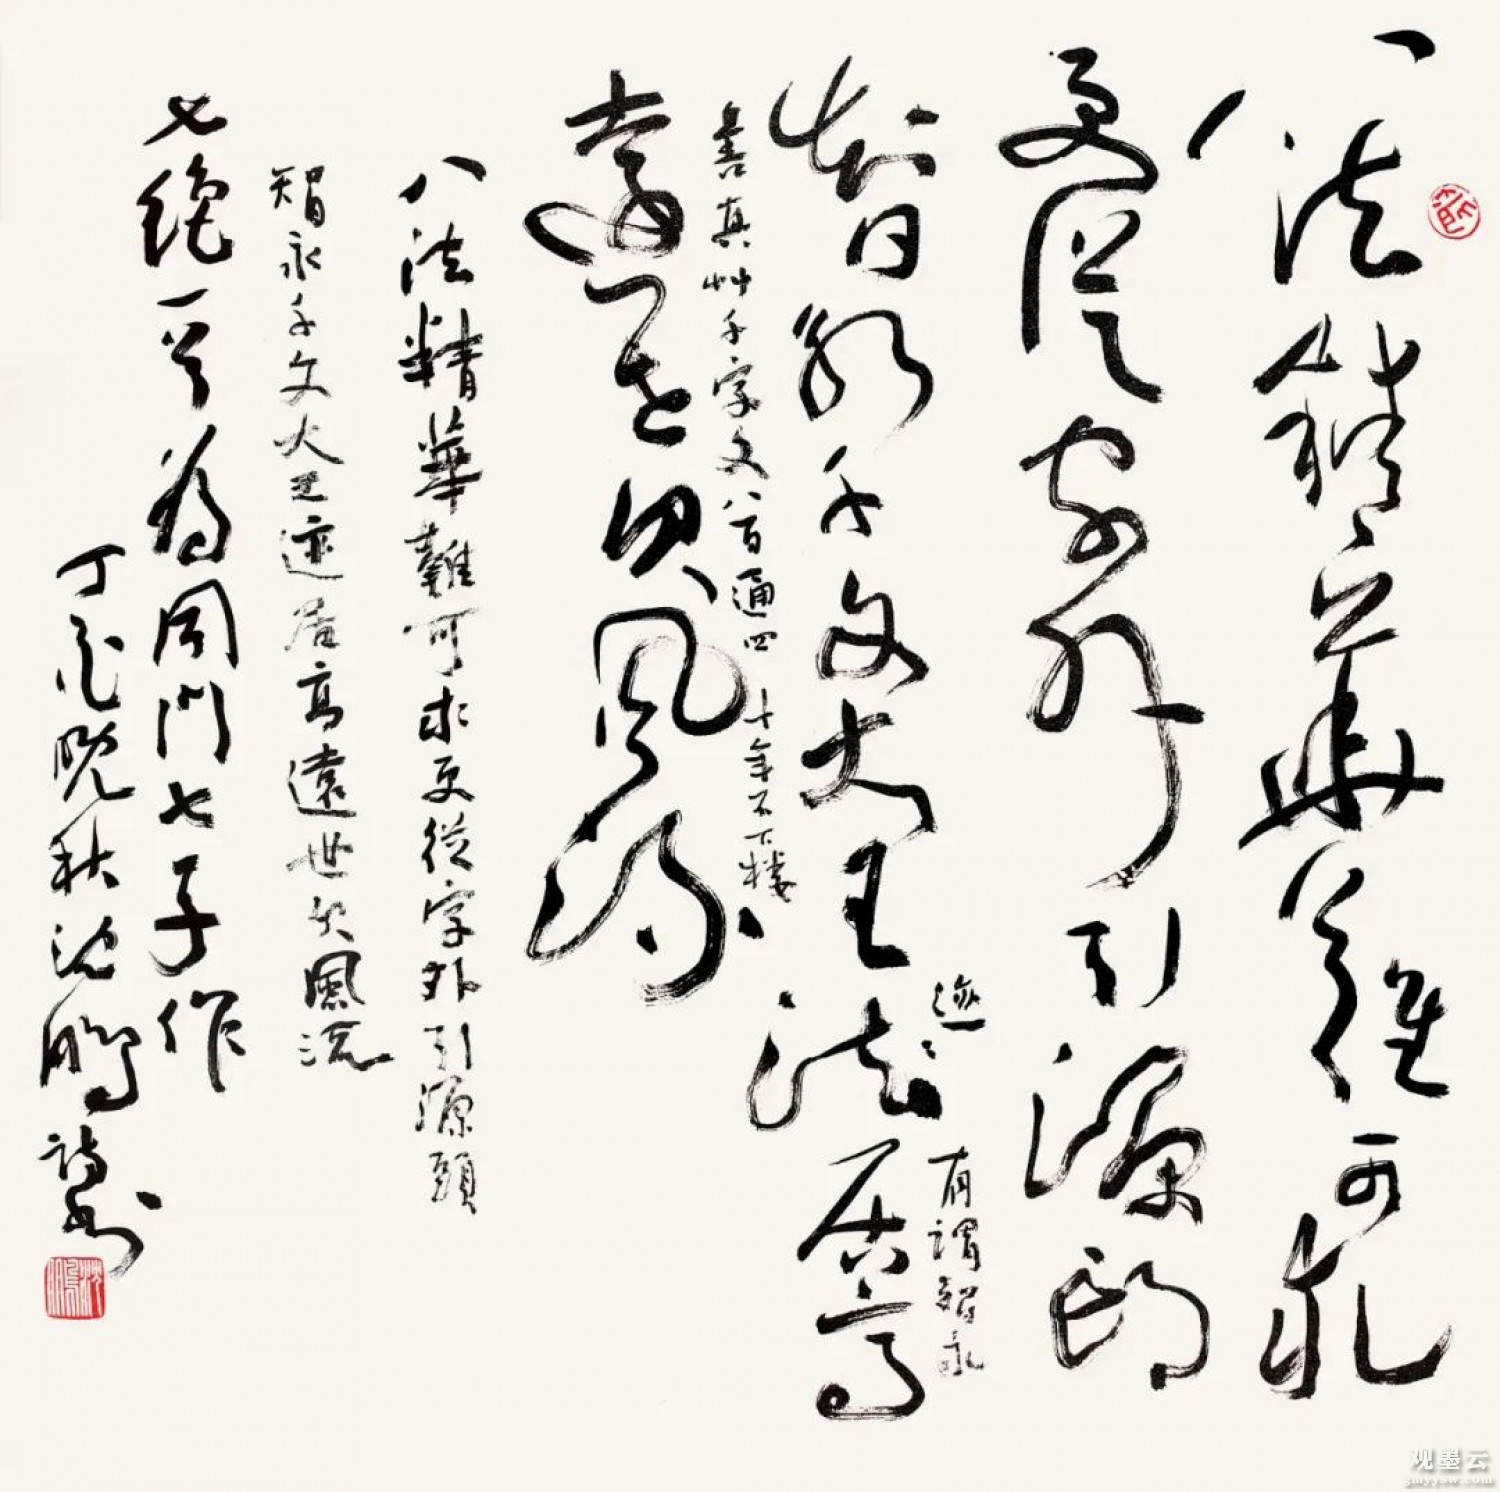 八法精華難可求
更從字外引源頭
智永千文大王法居高
迹
有謂智永
書真艸千字文八百通四十年不下樓
遠世欠風流
八法精華難可求更從字外引源頭
智永千文大王迹居高遠世欠風流
七絶一首為周門七子作
丁亥晚秋沈鵬詩書
沈鵬
观墨云